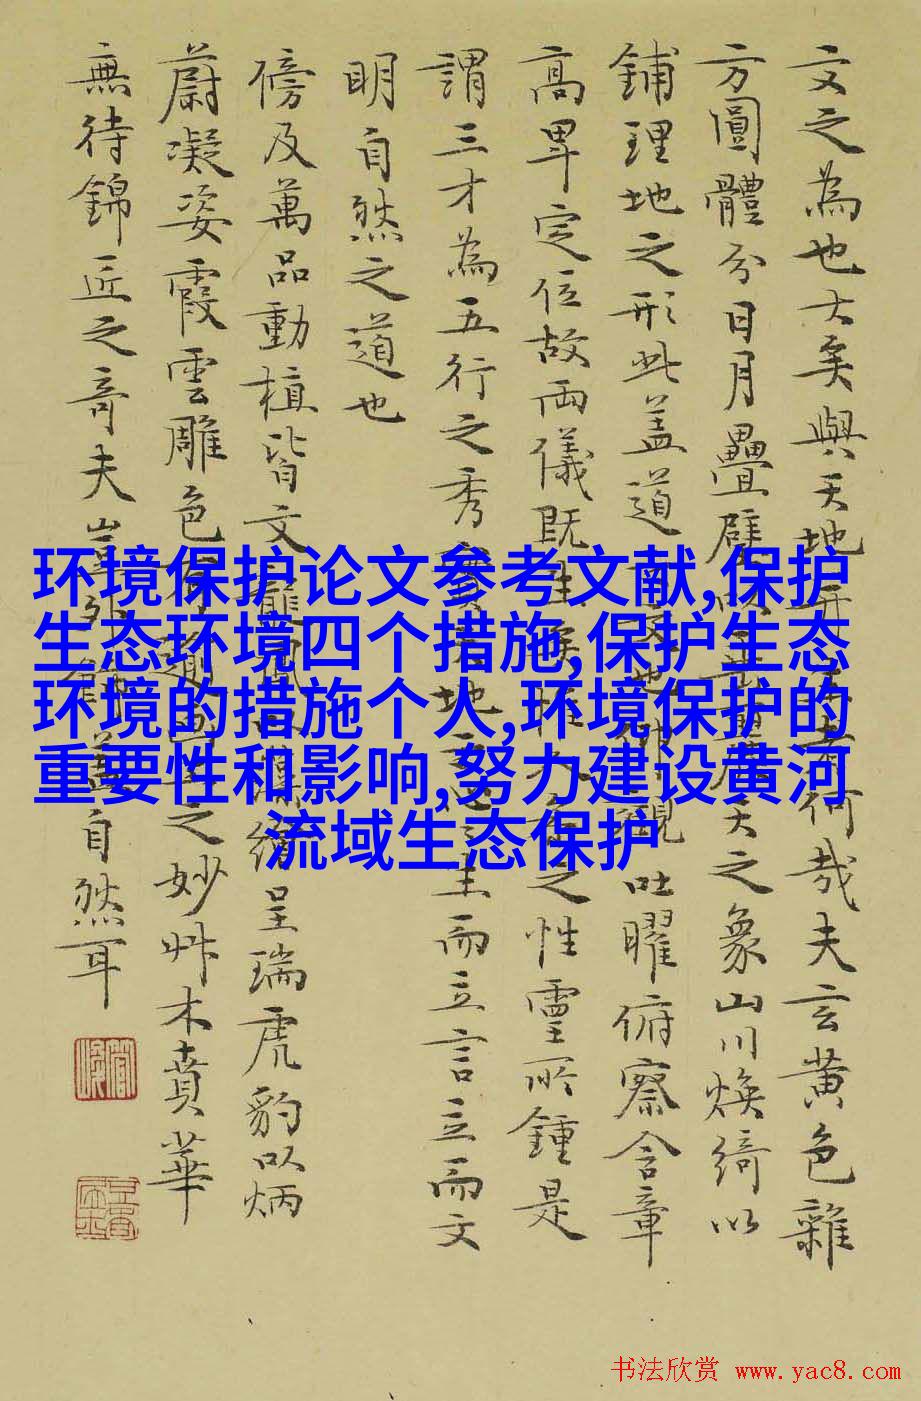 文之為也大矣與天地者何哉夫玄黃色雜
方圓體分日月疊璧以麗天之象山川煥綺以
鋪理地之形此盖道也仰觀吐曜俯察含章
高卑定位故兩儀既生之性靈所鍾是
謂三才為五行之秀地生而立言立而文
明自然之道也
傍及萬品動植皆文繪呈瑞虎豹以炳
蔚凝姿霞雲雕色之妙艸木賁華
無待錦匠之奇夫豈外自然耳
环境保护论文参考文献,保护
生态环境四个措施,保护生态
环境的措施个人,环境保护的
重要性和影响,努力建设黄河
流域生态保护
书法欣赏 www.yac8.com